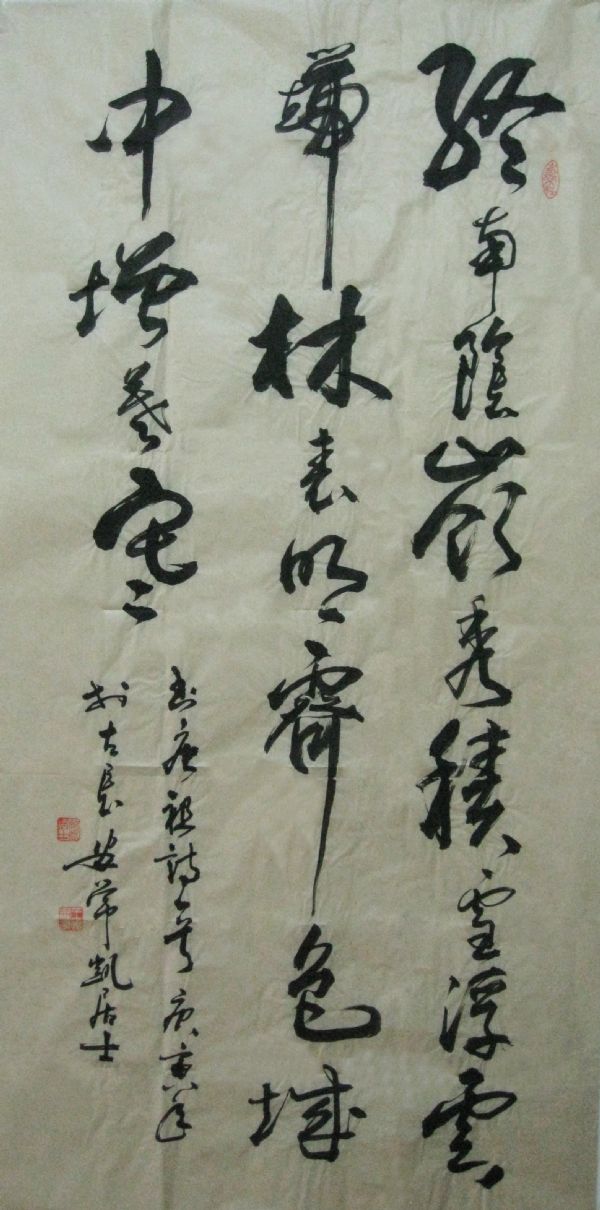 終南陰嶺秀積雪浮雲
端林表明霽色城
中增暮寒
书唐祖詩一首庚寅年
於古長安常凱居士